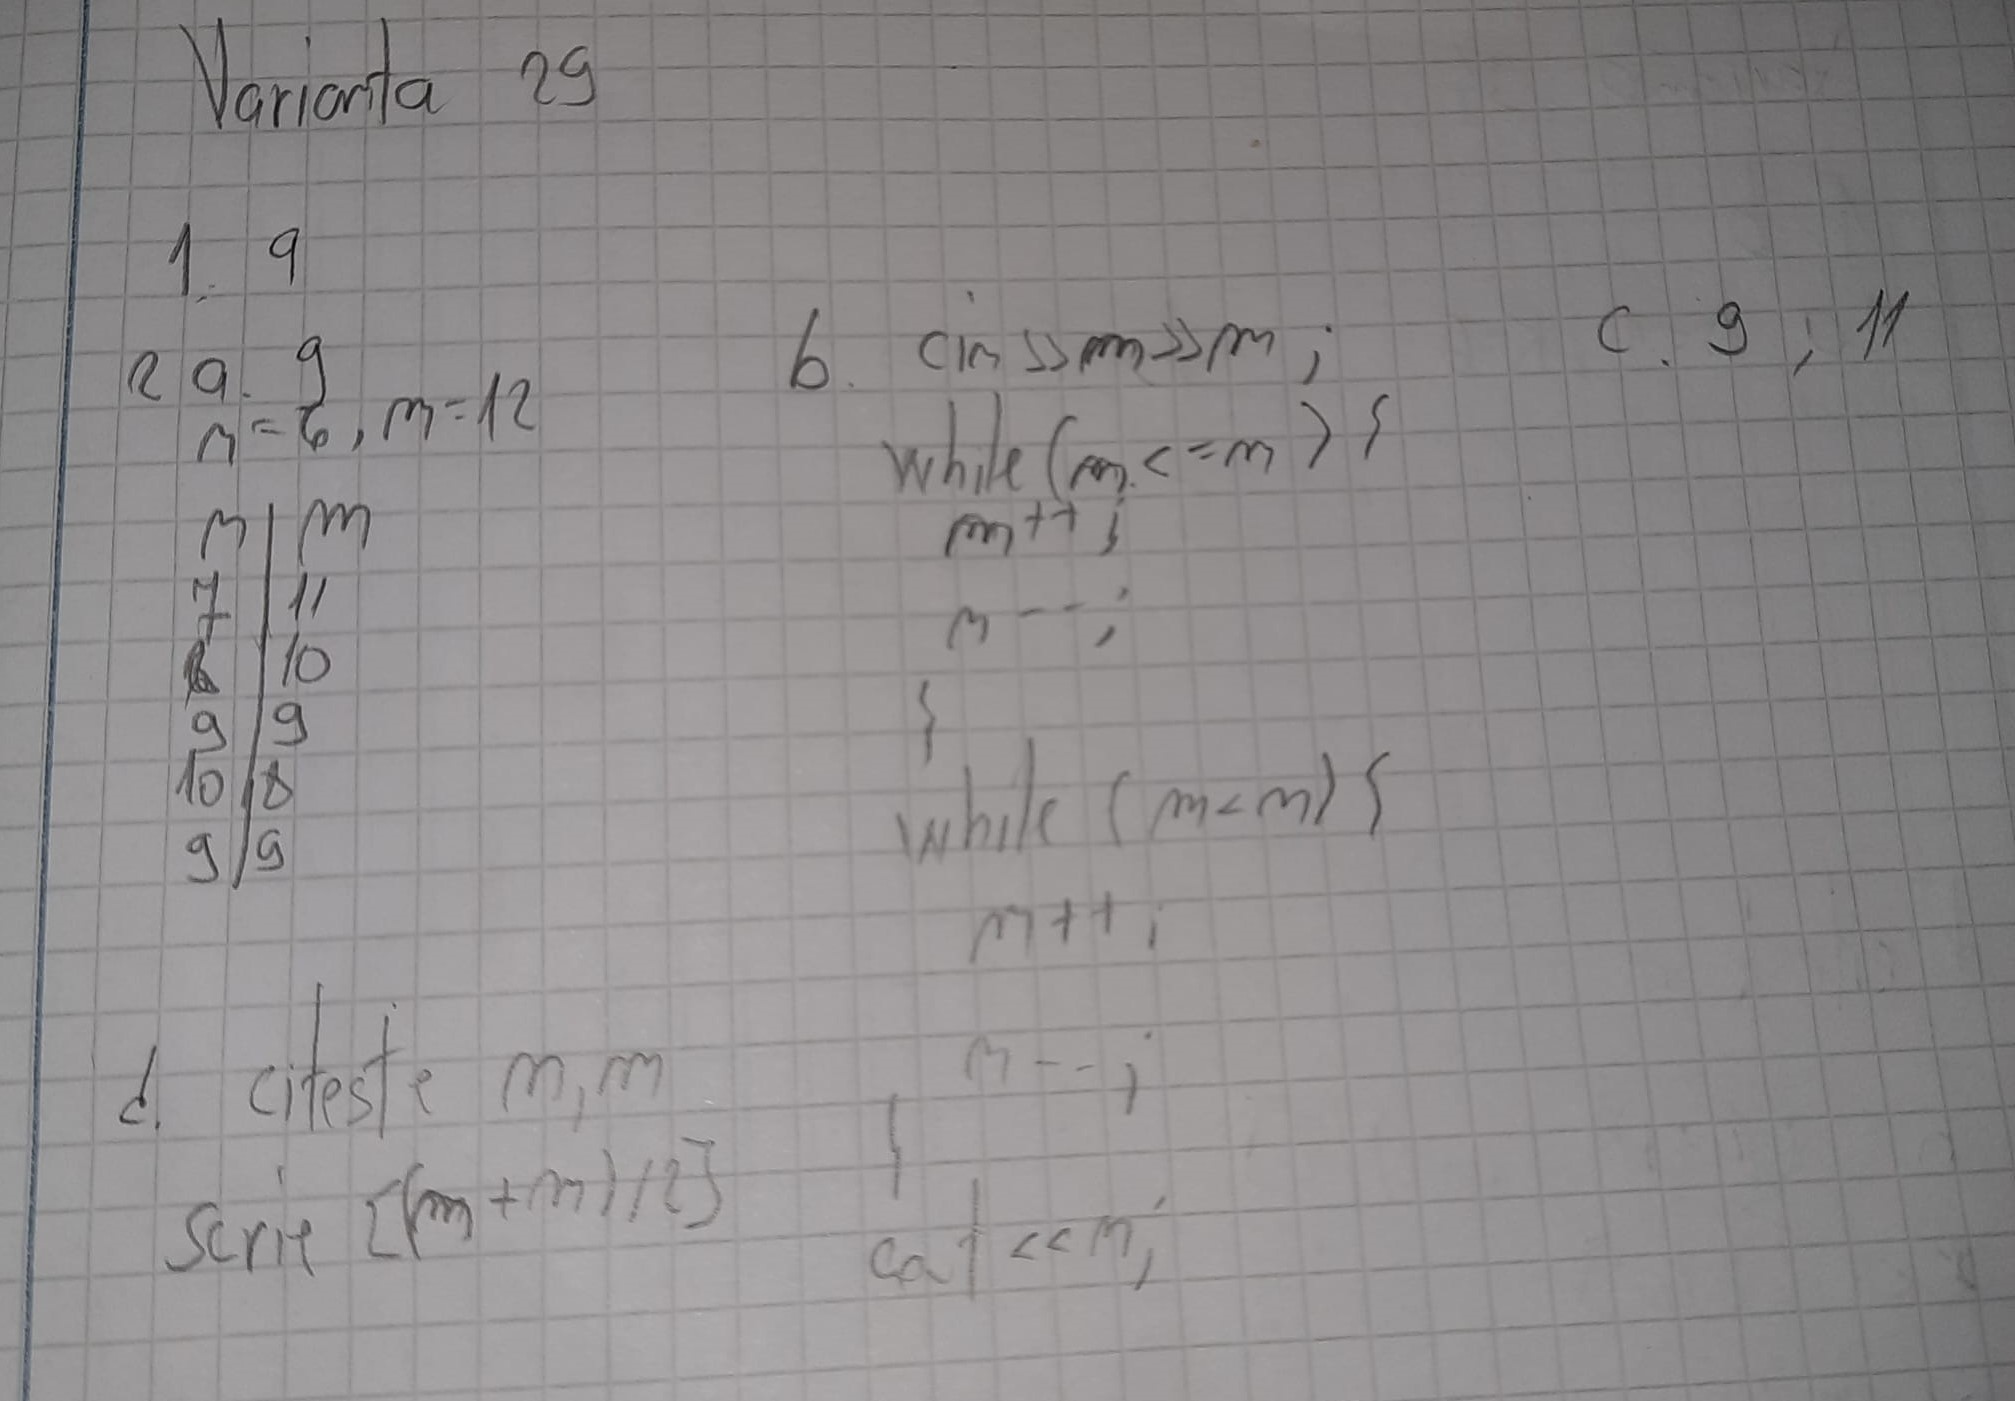 Varianta 29
1. a
2 a. 9
n=6, m=12
n | m
7 | 11
8 | 10
9 | 9
10 | 8
9 | 9
b. cin>>n>>m;
while(n<=m){
n++;
m--;
}
while (m<n){
m++;
n--;
}
cout<<n;
c. 9; 11
d. citeste n,m
scrie [(m+n)/2]